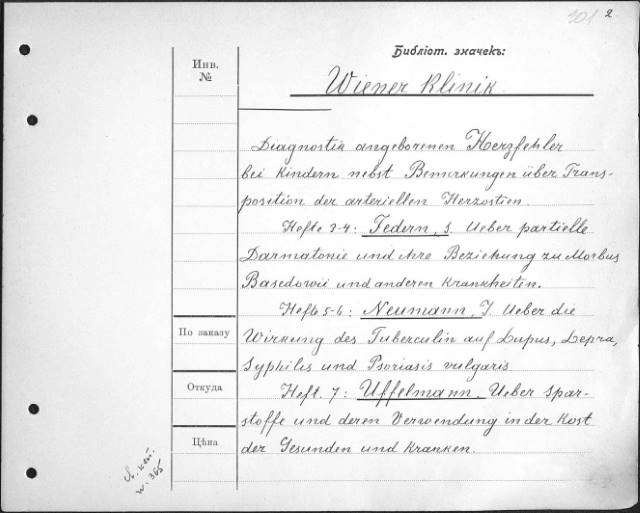 301 2
Библіот. значекъ:
Инв.
№
Wiener Klinik
Diagnostik angeborenen Herzfehler
bei Kindern nebst Bemerkungen über Trans-
position der arteriellen Herzostien.
Hefte 3-4: Federn, S. Ueber partielle
Darmatonie und ihre Beziehung zu Morbus
Basedowii und anderen Krankheiten.
Hefte 5-6: Neumann, J. Ueber die
По заказу
Wirkung des Tuberculin auf Lupus, Lepra,
Syphilis und Psoriasis vulgaris
Откуда
Heft. 7: Uffelmann. Ueber Spar-
stoffe und deren Verwendung in der Kost
Цѣна
der Gesunden und Kranken.
365